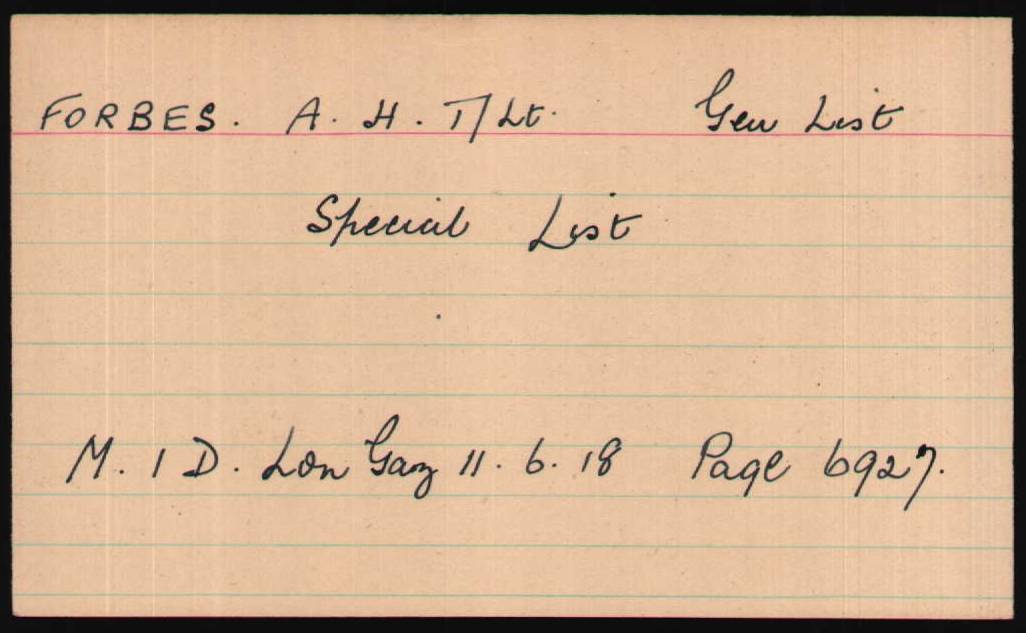 FORBES. A. H. T/Lt. Gen List
Special List
M. I D. Lon Gaz 11. 6. 18 Page 6927.